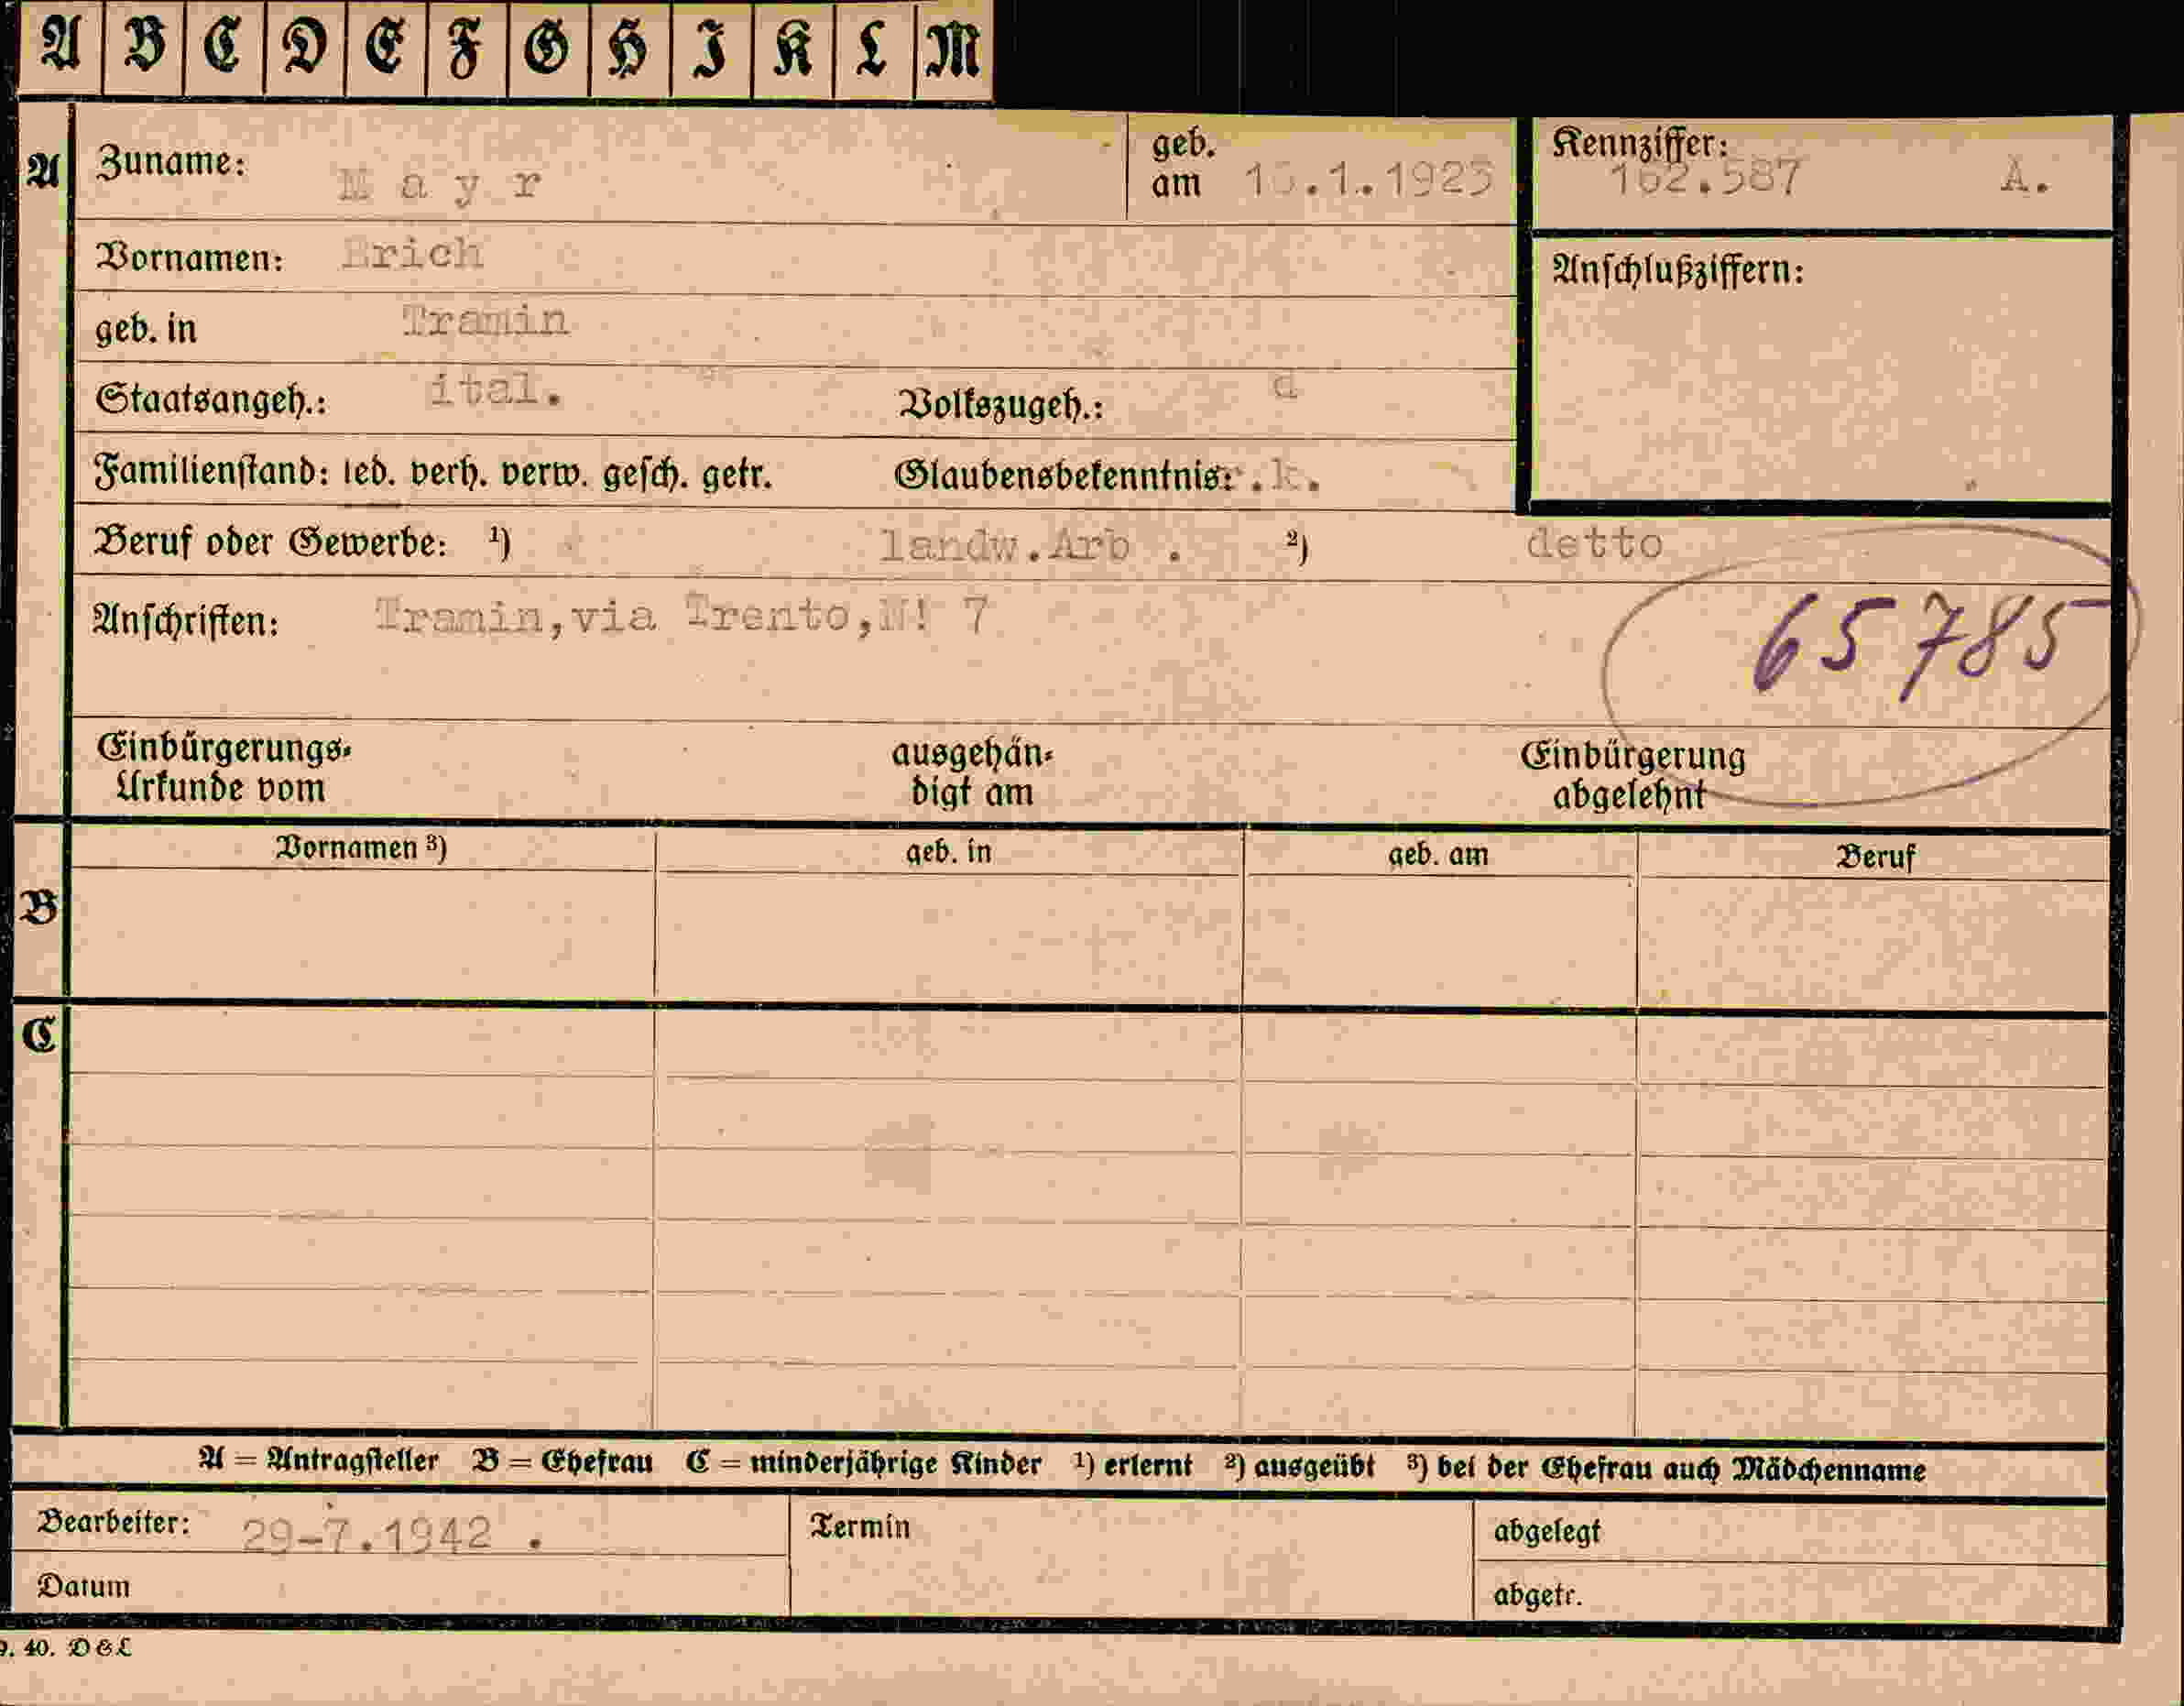 A B C D E F G H I K L M
A Zuname: Mayr geb. am 1923 Kennziffer: 162.587 A.
Vornamen: Erich
Anschlußziffern:
geb. in Tramin
Staatsangeh.: ital. Volkszugeh.: d
Familienstand: led. verh. verw. gesch. getr. Glaubensbekenntnis: .k.
Beruf oder Gewerbe: ¹) landw.Arb . ²) detto
Anschriften: Tramin,via Trento,N! 7
65785
Einbürgerungs-
Urkunde vom
ausgehän-
digt am
Einbürgerung
abgelehnt
B Vornamen ³) geb. in geb. am Beruf
C
A = Antragsteller B = Ehefrau C = minderjährige Kinder ¹) erlernt ²) ausgeübt ³) bei der Ehefrau auch Mädchenname
Bearbeiter: 29-7.1942 . Termin abgelegt
Datum abgetr.
9. 40. D & L